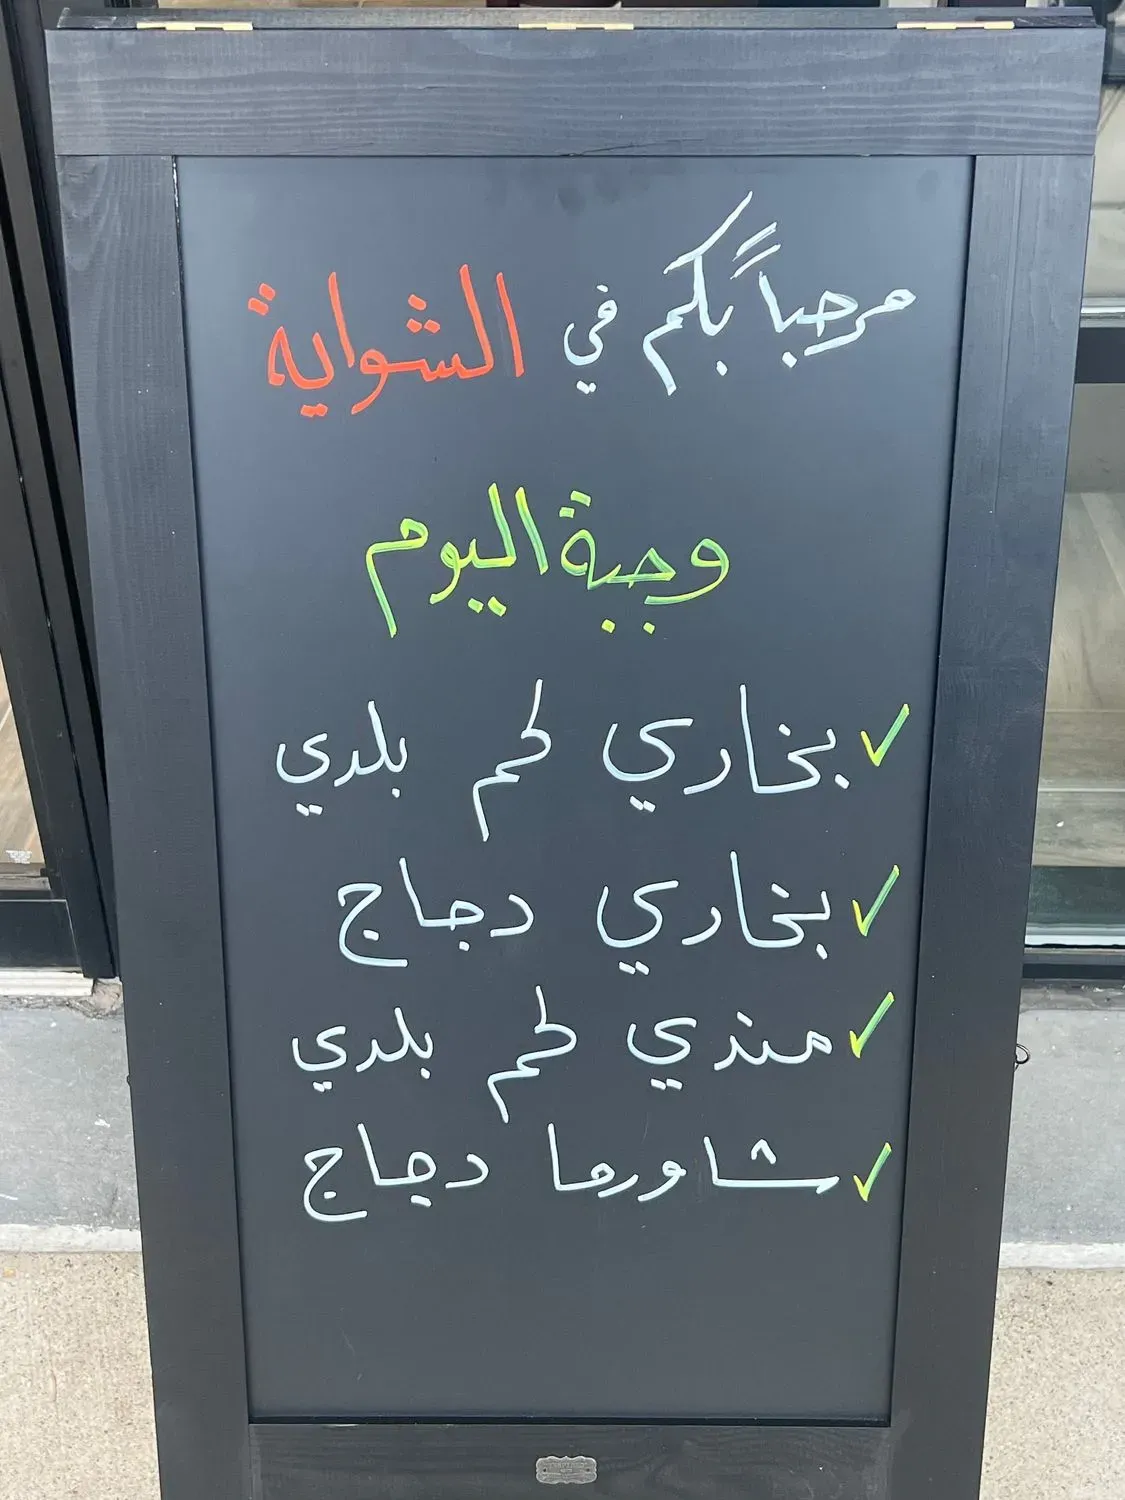 مرحباً بكم في الشواية
وجبة اليوم
✓ بخاري لحم بلدي
✓ بخاري دجاج
✓ مندي لحم بلدي
✓ شاورما دجاج